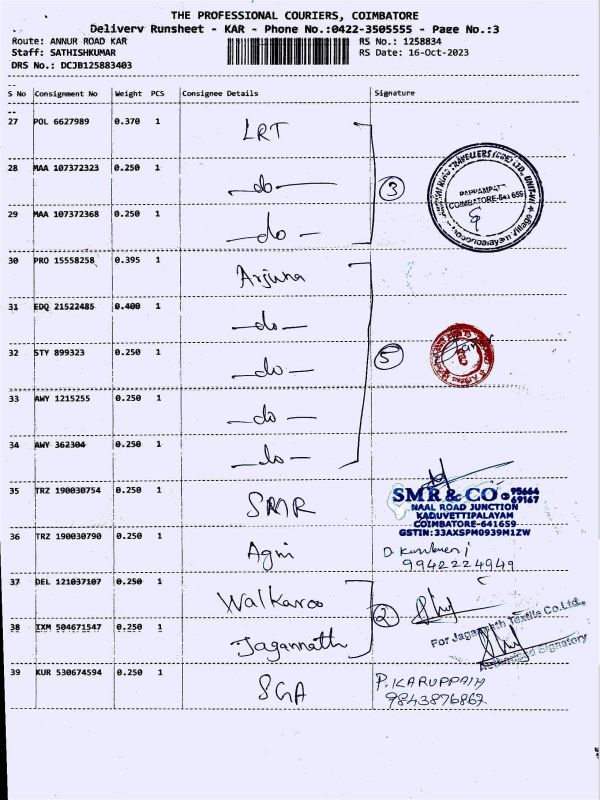 THE PROFESSIONAL COURIERS, COIMBATORE
Delivery Runsheet - KAR - Phone No.:0422-3505555 - Page No.:3
Route: ANNUR ROAD KAR
RS No.: 1258834
Staff: SATHISHKUMAR
RS Date: 16-Oct-2023
DRS No.: DCJB125883403
S No Consignment No Weight PCS Consignee Details Signature
27 POL 6627989 0.370 1 LRT
28 MAA 107372323 0.250 1 —do—
3
PAPPAMPATTI
COIMBATORE-641 659
29 MAA 107372368 0.250 1 —do—
30 PRO 15558258 0.395 1 Arjuna
31 EDQ 21522485 0.400 1 —do—
32 STY 899323 0.250 1 —do—
5
33 AWY 1215255 0.250 1 —do—
34 AWY 362304 0.250 1 —do—
35 TRZ 190030754 0.250 1 SMR
SMR & CO 95666
69167
NAAL ROAD JUNCTION
KADUVETTIPALAYAM
COIMBATORE-641659
GSTIN:33AXSPM0939M1ZW
36 TRZ 190030790 0.250 1 Agni
9942224949
37 DEL 121037107 0.250 1 Walkaroo
2
38 IXM 504671547 0.250 1 Jagannath
For Jagannath Textile Co.Ltd.,
Authorised Signatory
39 KUR 530674594 0.250 1 SGA
P. KARUPPAIH
9843876867